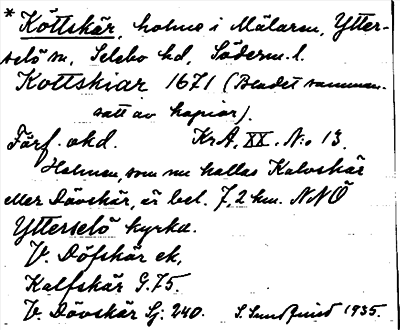 * Köttskär, holme i Mälaren, Ytter-
selö sn, Selebo hd, Söderm. l.
Kottskiar 1671 (Bladet samman-
satt av kopior).
Förf. okd. KrA, XX. N:o 13.
Holmen, som nu kallas Kalvskär
eller Dövskär, är bel. 7,2 km. NNÖ
Ytterselö kyrka.
V. Döfskär ek,
Kalfskär G.75.
V. Dövskär Sj: 240. S. Sundquist 1935.